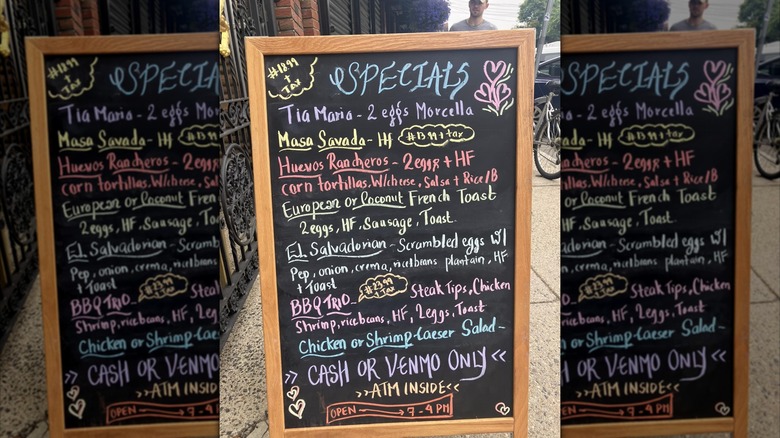 #1899 + TAX
SPECIALS
Tia Maria - 2 eggs Morcella
Masa Savada - HF #1399 + tax
Huevos Rancheros - 2 eggs + HF
corn tortillas. W/cheese, Salsa + Rice/B
European or Coconut French Toast
2 eggs, HF, Sausage, Toast.
El Salvadorian - Scrambled eggs W/
Pep, onion, crema, rice beans plantain, HF
+ Toast #2399 + Tax
BBQ TRIO - Steak Tips, Chicken
Shrimp, rice beans, HF, 2 eggs, Toast
Chicken or Shrimp - Caeser Salad -
>> CASH OR VENMO ONLY <<
>> ATM INSIDE <<
OPEN 7 - 4 PM